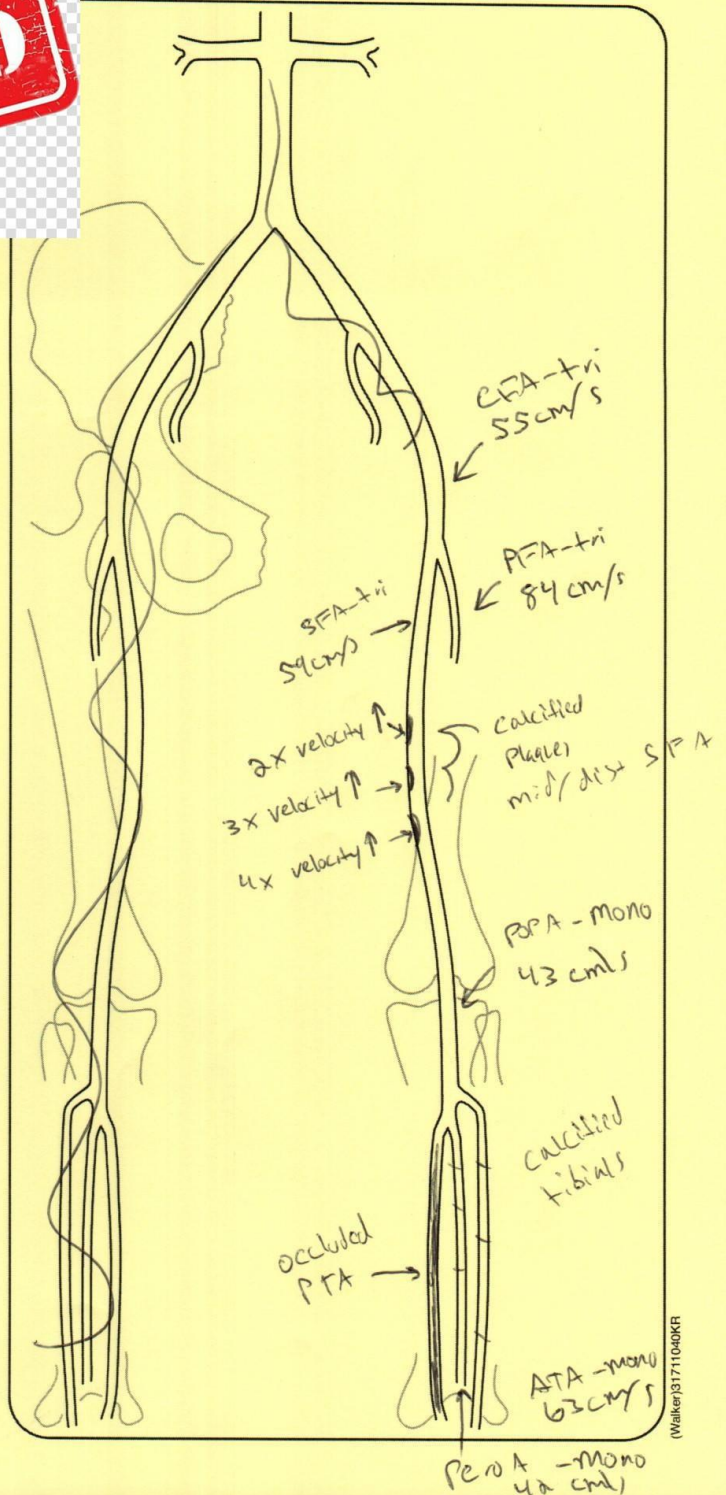 CFA-tri
55cm/s
PFA-tri
84 cm/s
SFA-tri
59cm/s
2x velocity ↑
3x velocity ↑
4x velocity ↑
calcified
plaques
mid/dist SFA
POPA-mono
43 cm/s
calcified
tibials
occluded
PTA
ATA-mono
63cm/s
PeroA-mono
42 cm/s
(Walker)31711040KR